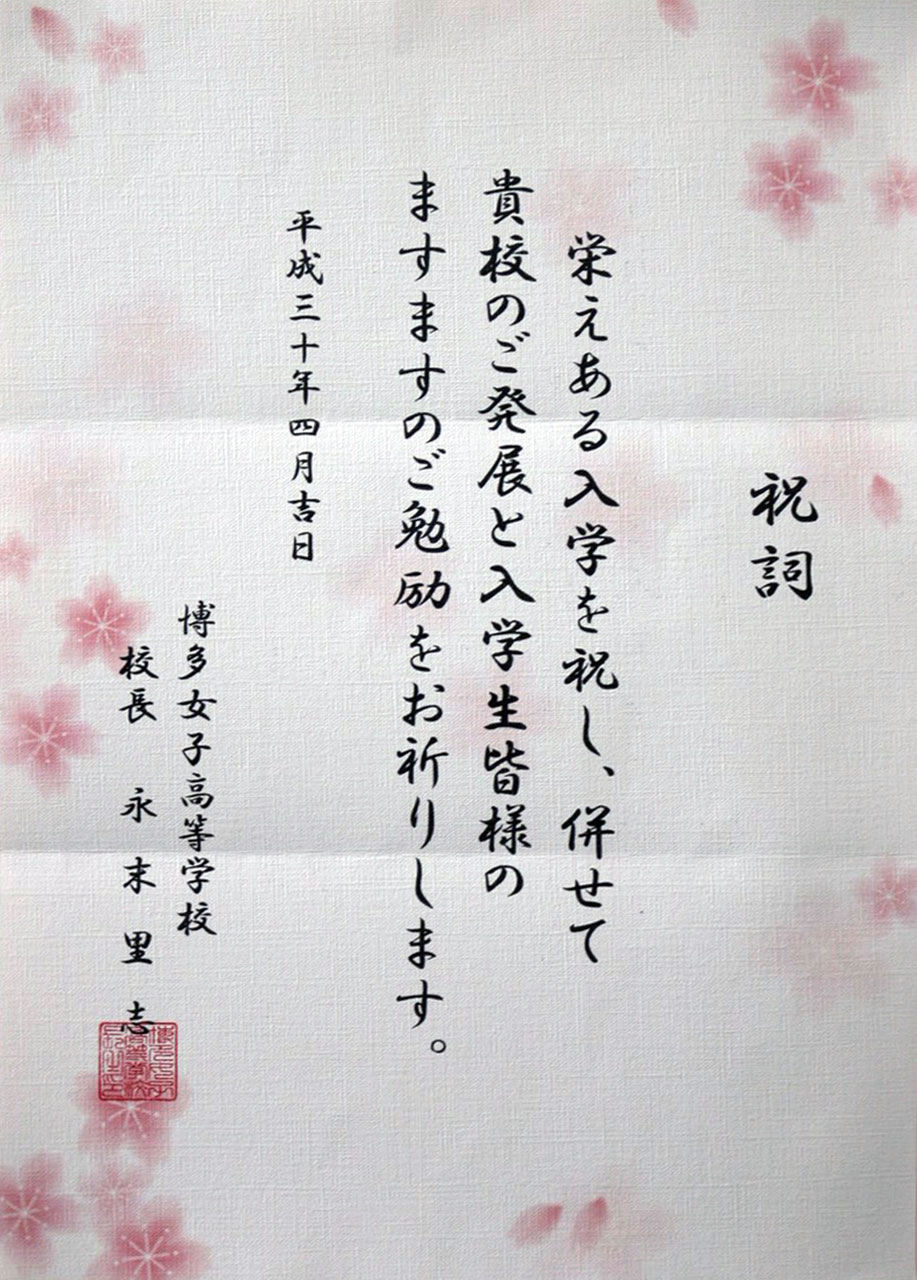 祝詞
栄えある入学を祝し、併せて
貴校のご発展と入学生皆様の
ますますのご勉励をお祈りします。
平成三十年四月吉日
博多女子高等学校
校長 永末里志